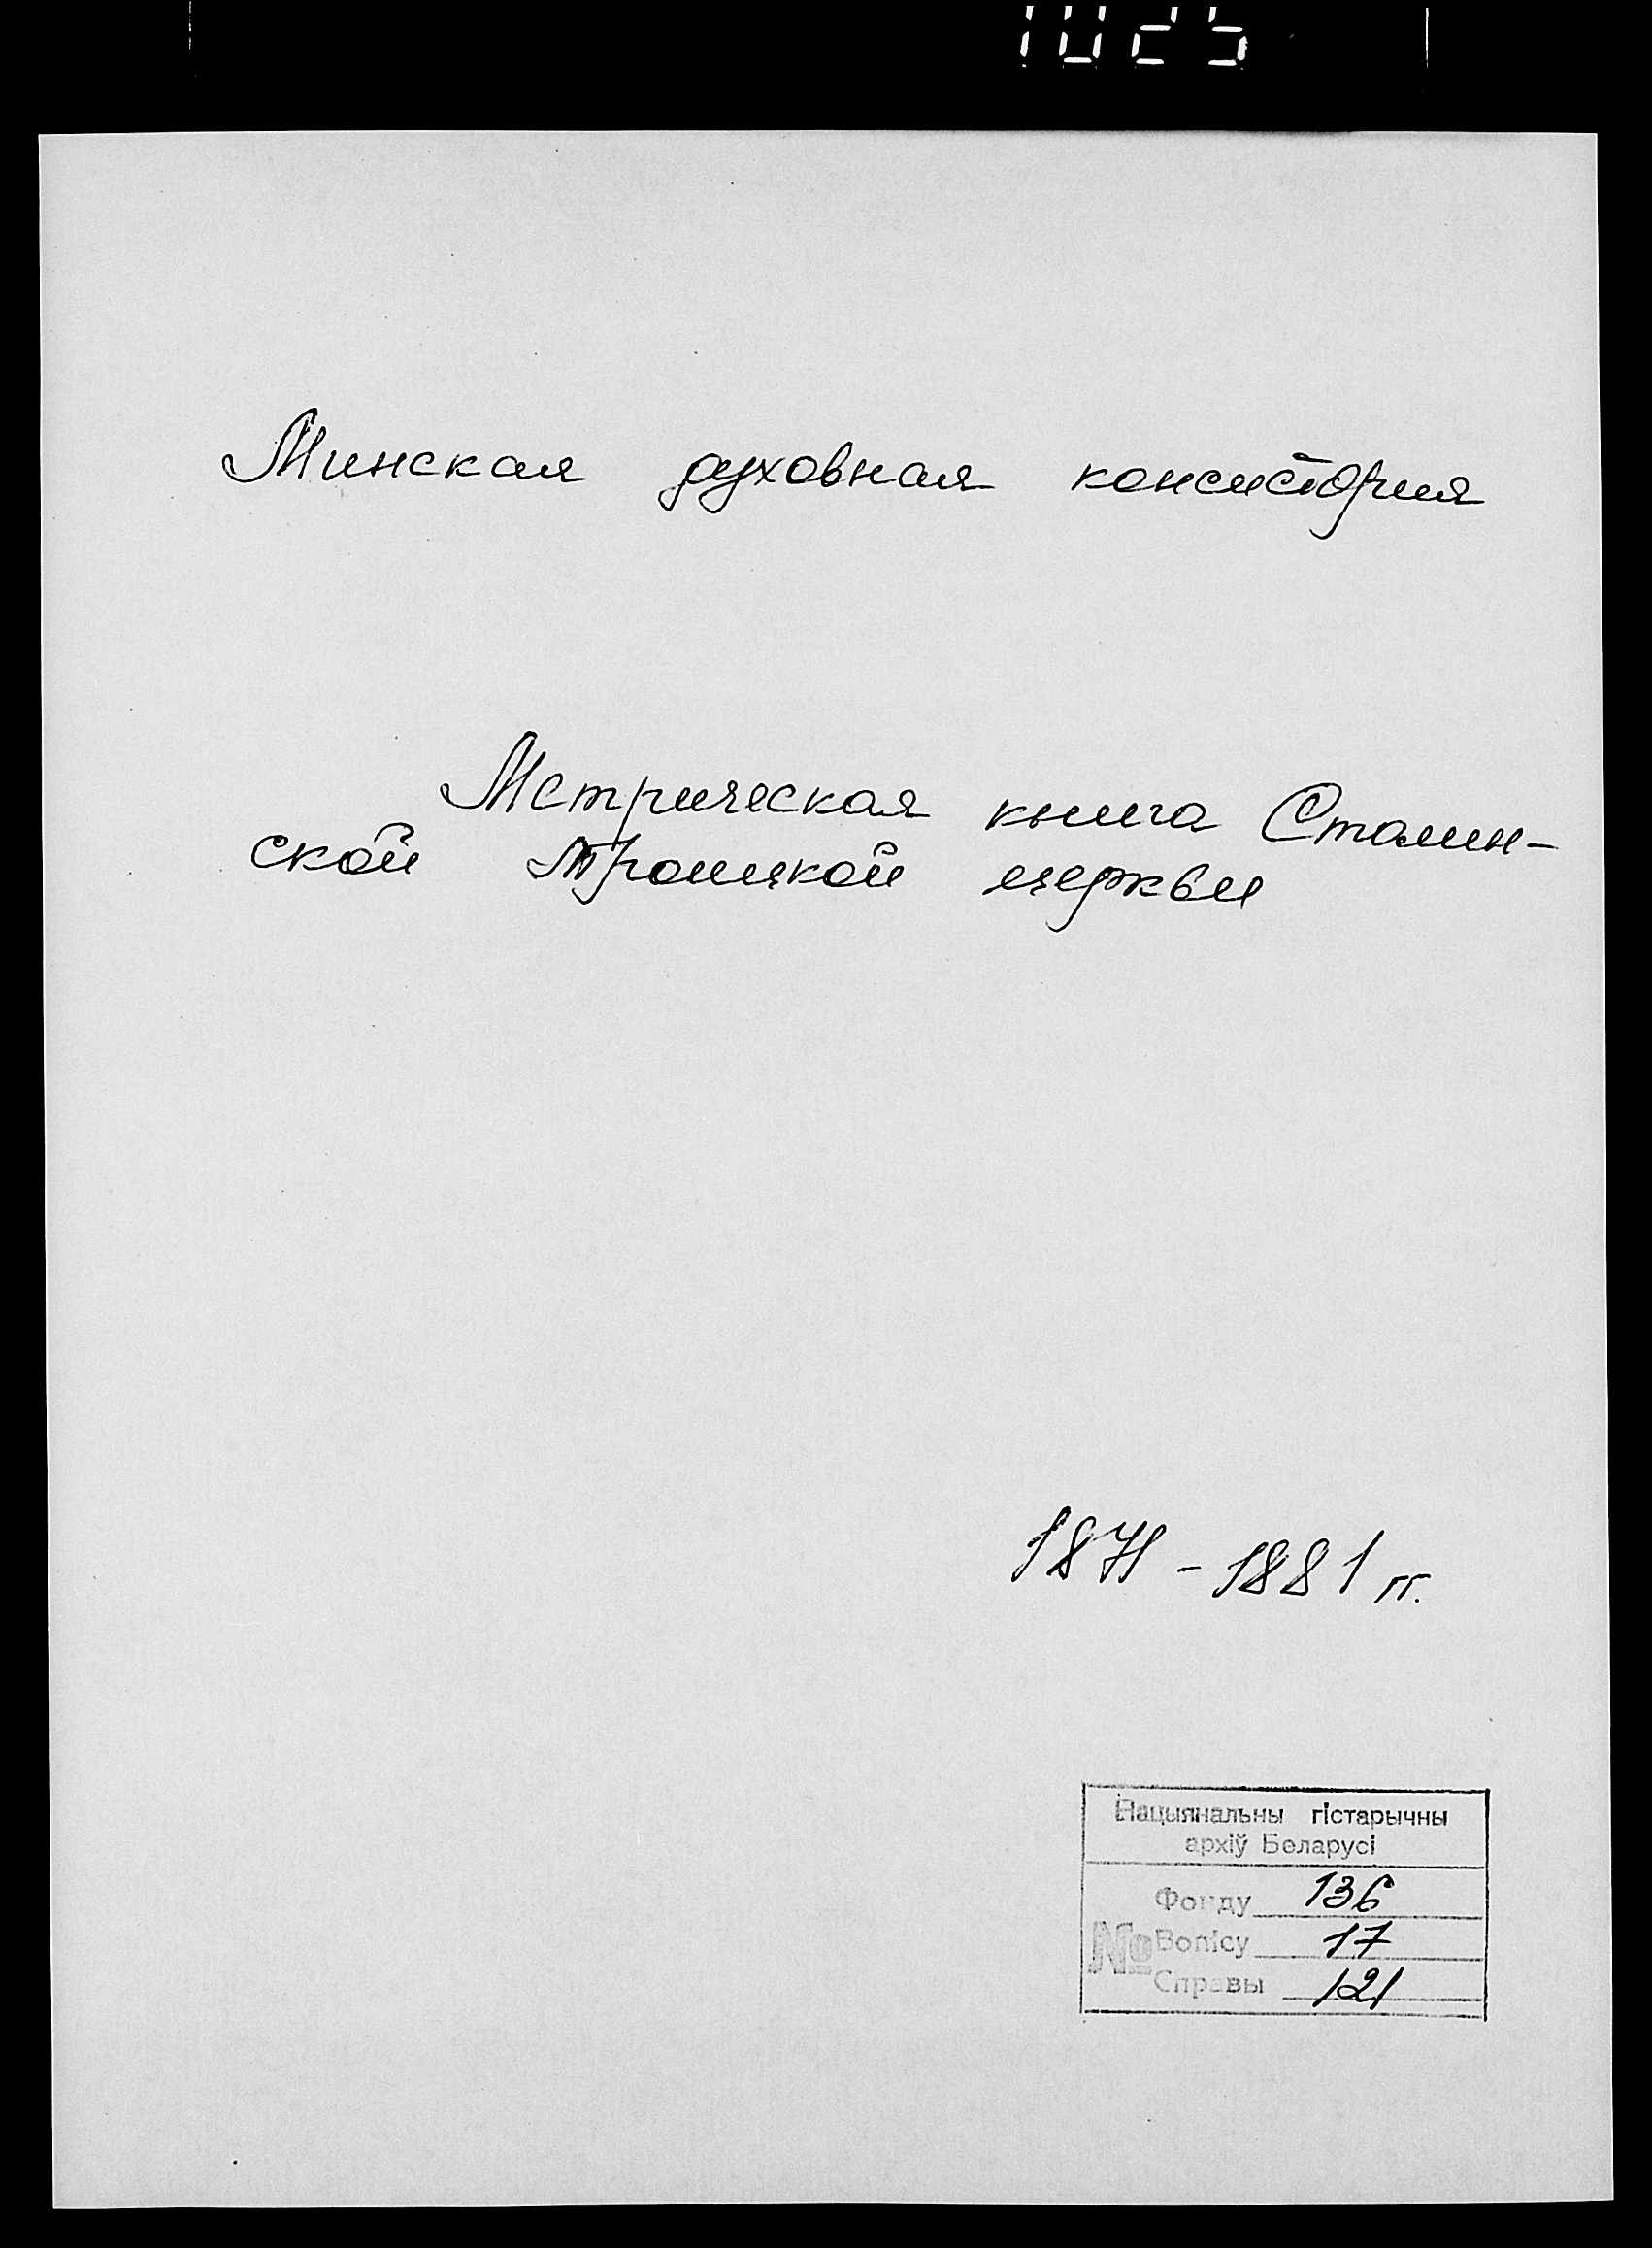 1025
Минская духовная консистория
Метрическая книга Столин-
ской Троицкой церкви
1871 - 1881 гг.
Нацыянальны гістарычны
архіў Беларусі
Фонду 136
№ Вопісу 17
Справы 121